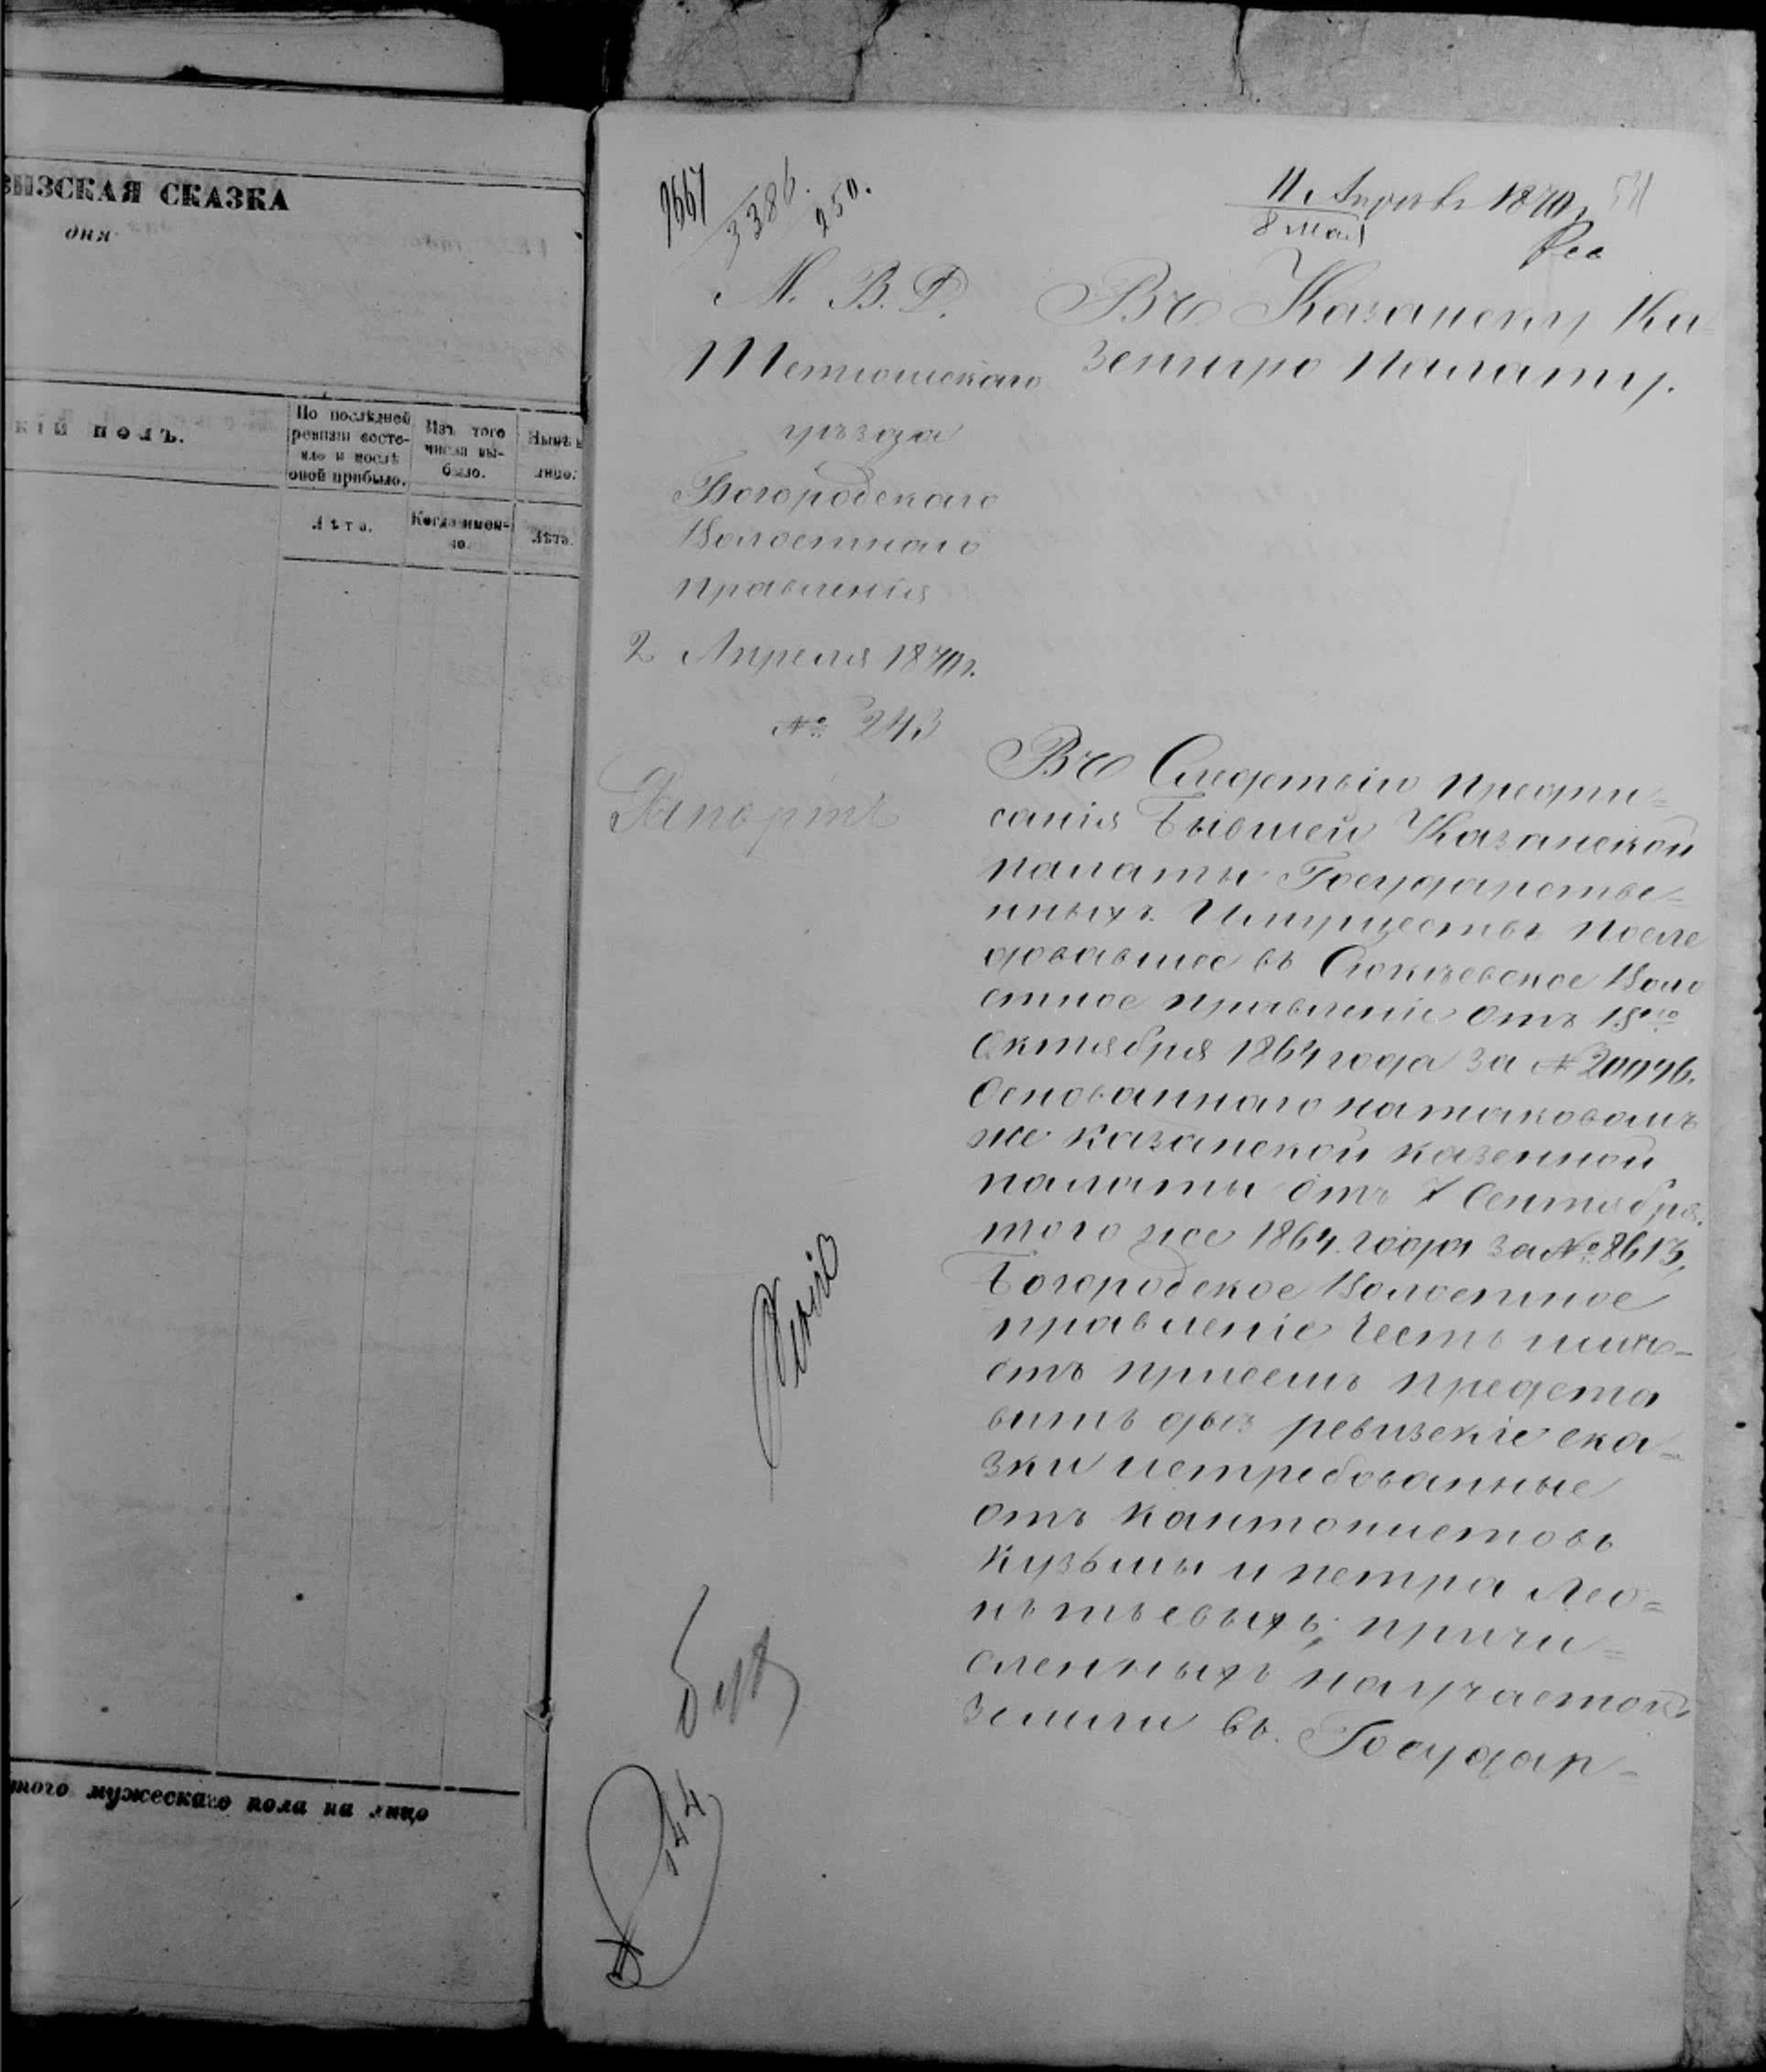 ВИЗСКАЯ СКАЗКА
дня
кій полъ.
По послѣдней
ревизіи состо-
яло и послѣ
оной прибыло.
Изъ того
числа вы-
было.
Нынѣ н
лицо.
Лѣта.
Когда имен-
но.
Лѣта.
того мужескаго пола на лицо
3386.
250.
11 Апрѣль 1870 г
8 мая
М. В. Д.
Тетюшскаго
уѣзда
Богородскаго
Волостнаго
правленія
2 Апреля 1870 г.
№ 243
Рапортъ
Въ Казанску Ка
зенную палату.
Въ Следствіи предпи=
санія Бывшей Казанской
палаты Государстве=
нныхъ Имуществъ после
довавшее въ Сюкѣевское Воло
стное правленіе отъ 15го
Октября 1864 года за №
Основаннаго на таковомъ
же казанской казенной
палаты отъ 7 Сентября.
того же 1864. года за № 8613,
Богородское Волостное
правленіе честь имѣ-
етъ присемъ предста
вить двѣ ревизскіе ска-
зки истребованные
отъ кантонистовъ
Кузьмы и петра Лео=
нтьевыхъ, причи=
сленныхъ на участок
земли въ. Государ-
144